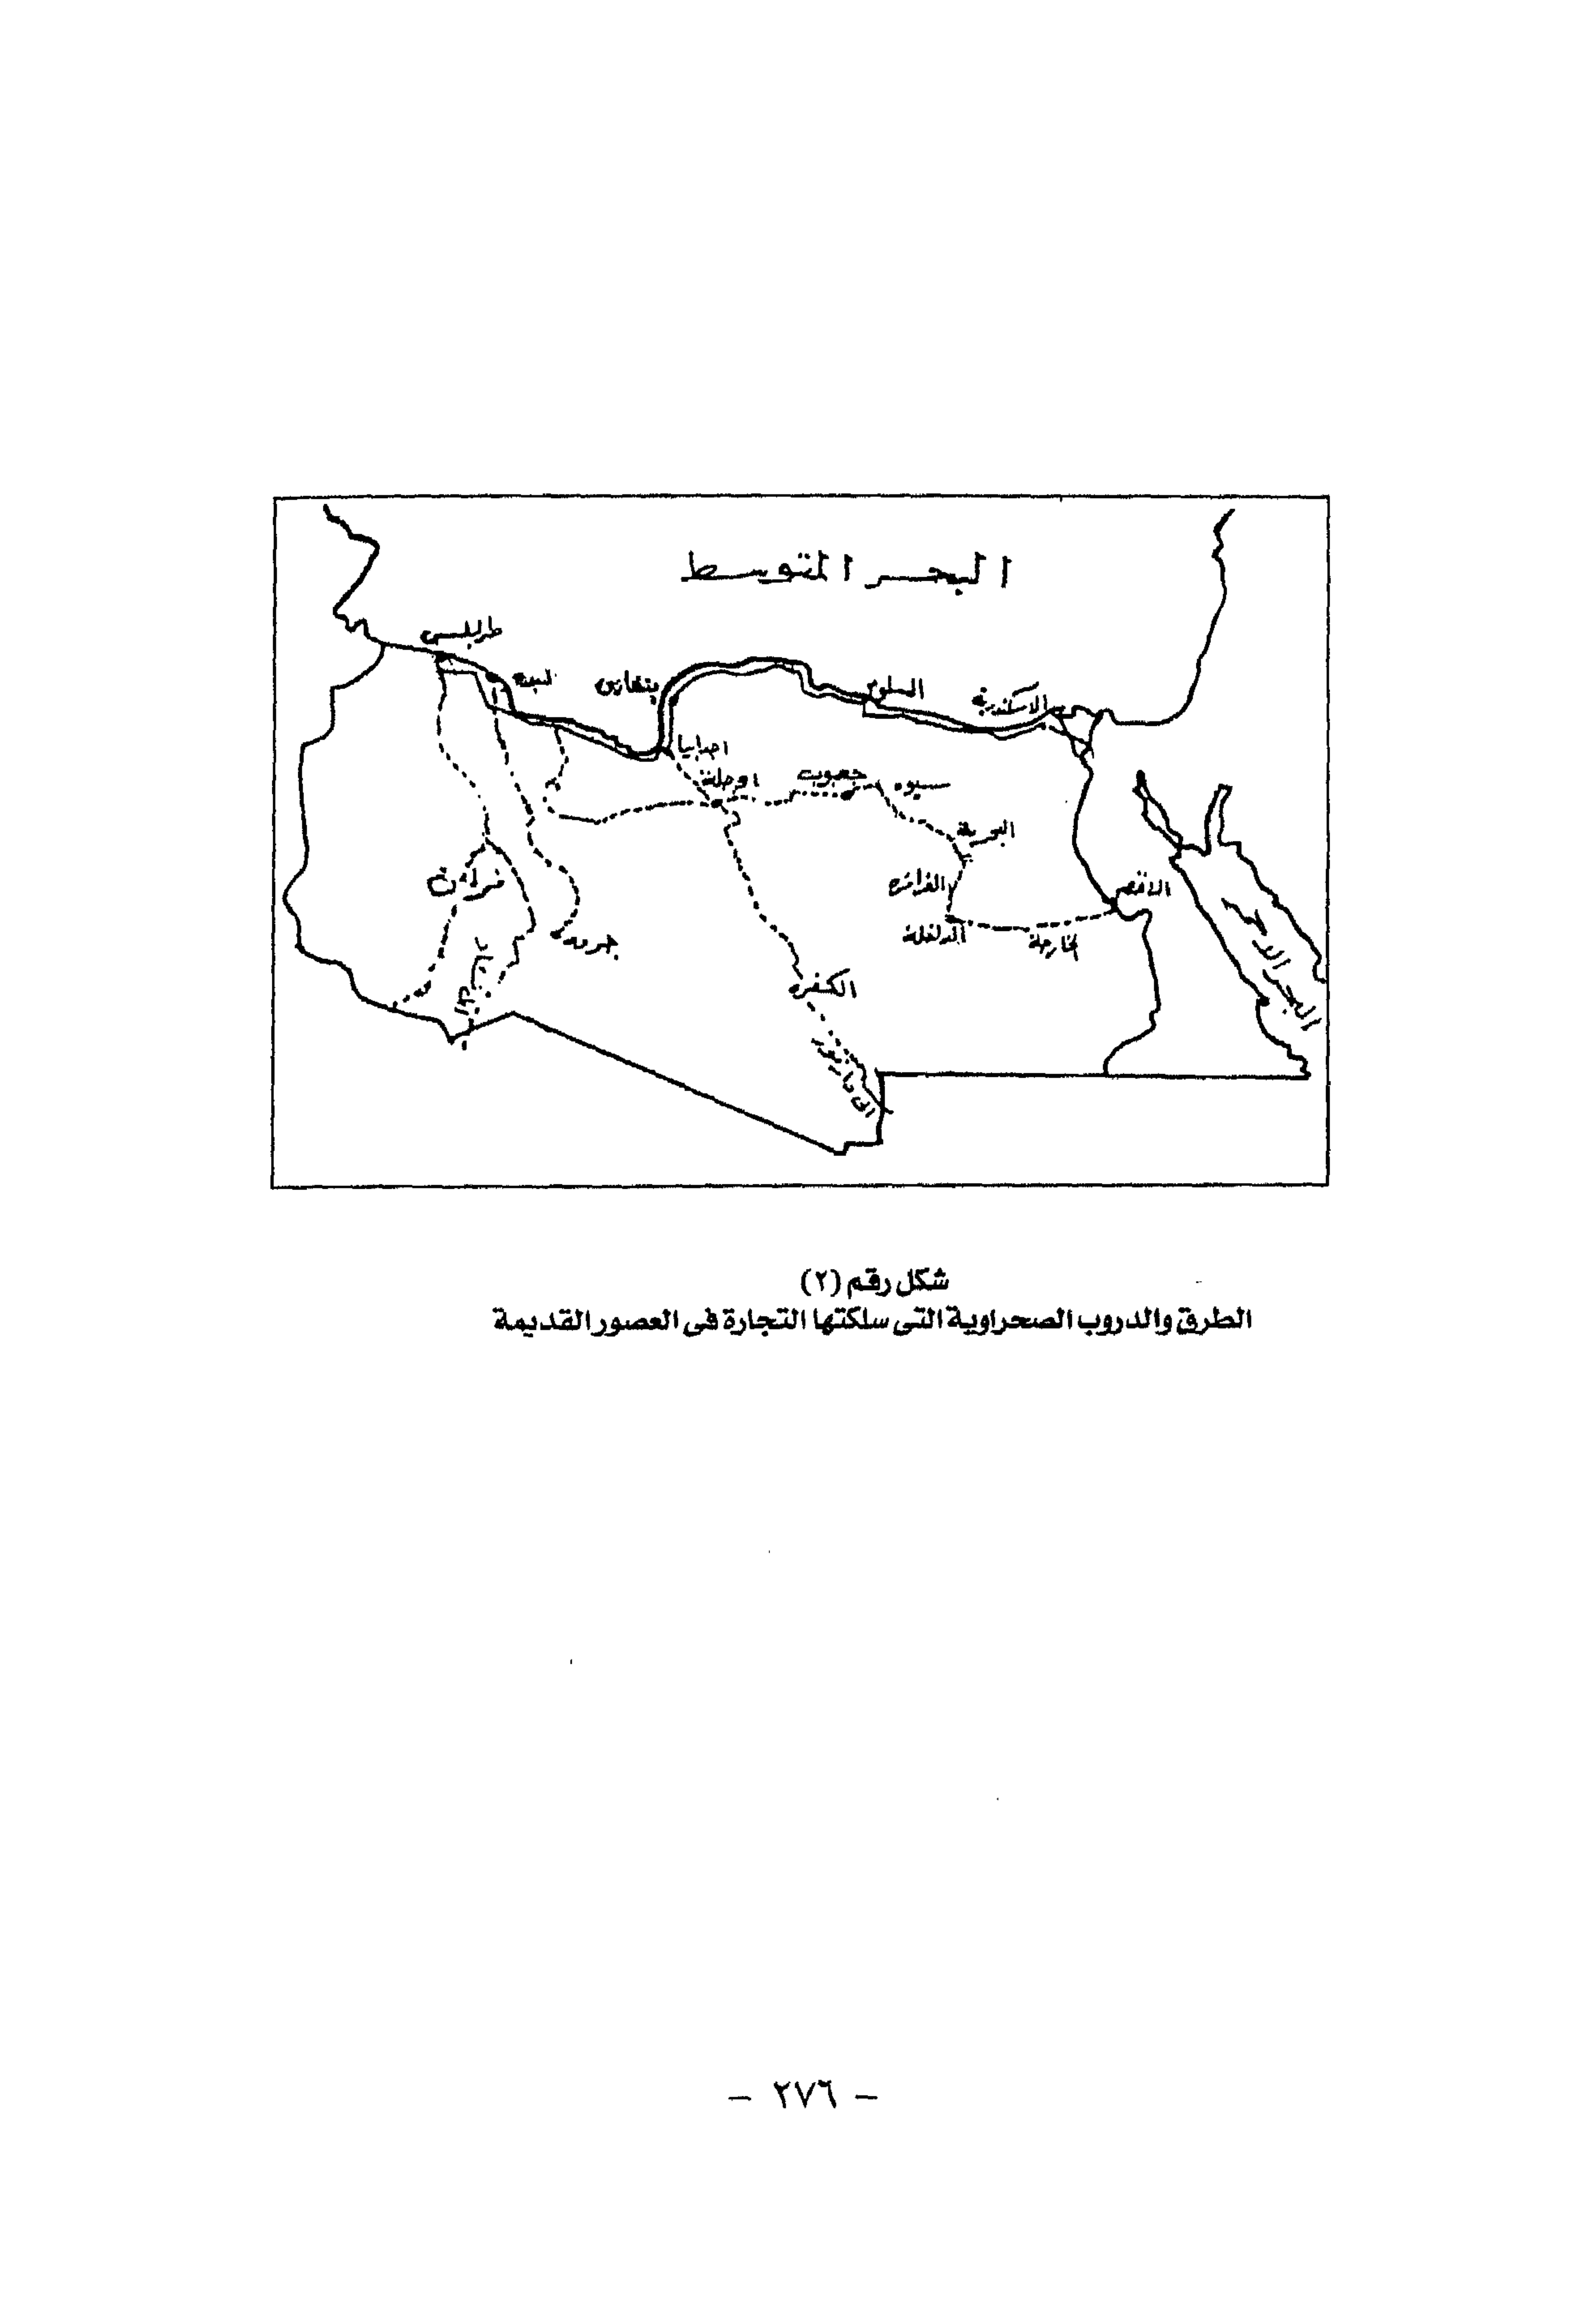 البحر المتوسط
طرابلس
لبده
بنغازى
السلوم
الاسكندرية
اجدابيا
اوجلة
جغبوب
سيوه
البحرية
فزان
الفرافره
الاقصر
جرمه
الداخلة
الخارجة
البحر الأحمر
الكفره
شكل رقم (٢)
الطرق والدروب الصحراوية التى سلكتها التجارة فى العصور القديمة
– ٢٧٦ –